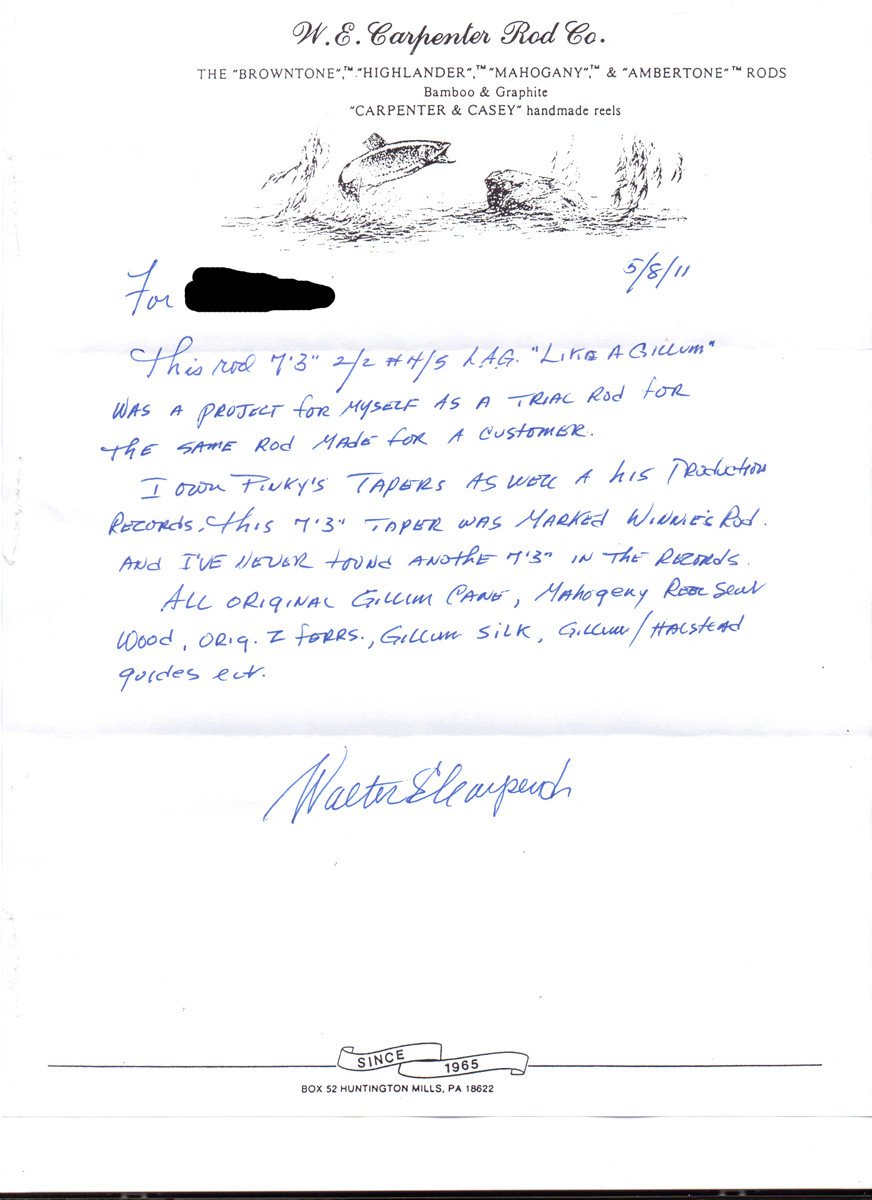 W. E. Carpenter Rod Co.
THE "BROWNTONE",™ "HIGHLANDER",™ "MAHOGANY",™ & "AMBERTONE"™ RODS
Bamboo & Graphite
"CARPENTER & CASEY" handmade reels
5/8/11
For
This rod 7'3" 2/2 #4/5 L.A.G. "LIKE A GILLUM"
WAS A PROJECT FOR MYSELF AS A TRIAL ROD FOR
THE SAME ROD MADE FOR A CUSTOMER.
I OWN PINKY'S TAPERS AS WELL A HIS PRODUCTION
RECORDS. THIS 7'3" TAPER WAS MARKED WINNIE'S ROD.
AND I'VE NEVER FOUND ANOTHE 7'3" IN THE RECORDS.
ALL ORIGINAL GILLUM CANE, MAHOGENY REEL SEAT
WOOD, ORIG. Z FERRS., GILLUM SILK, GILLUM/HALSTEAD
guides ect.
Walter E Carpenter
SINCE 1965
BOX 52 HUNTINGTON MILLS, PA 18622